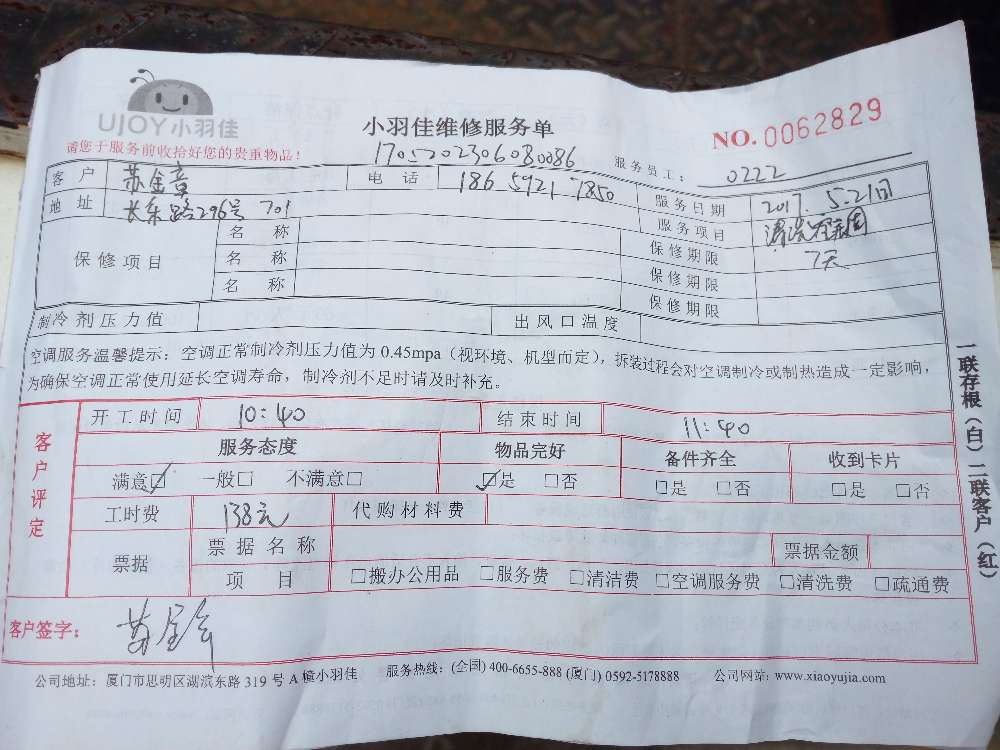 UJOY小羽佳
小羽佳维修服务单
NO.0062829
请您于服务前收拾好您的贵重物品!
服务员工: 0222
客户 电话 186 5921 7850 服务日期 2017.5.21日
地址 长乐路296号 701 服务项目 清洗
保修项目 名称 保修期限 7天
名称 保修期限
名称 保修期限
制冷剂压力值 出风口温度
空调服务温馨提示:空调正常制冷剂压力值为0.45mpa(视环境、机型而定),拆装过程会对空调制冷或制热造成一定影响,
为确保空调正常使用延长空调寿命,制冷剂不足时请及时补充。
客户评定
开工时间 10:40 结束时间 11:40
服务态度 物品完好 备件齐全 收到卡片
满意☑ 一般□ 不满意□ ☑是 □否 □是 □否 □是 □否
工时费 138元 代购材料费
票据 票据名称 票据金额
项目 □搬办公用品 □服务费 □清洁费 □空调服务费 □清洗费 □疏通费
客户签字:
公司地址:厦门市思明区湖滨东路319号A幢小羽佳 服务热线:(全国)400-6655-888 (厦门)0592-5178888 公司网站:www.xiaoyujia.com
一联存根(白)二联客户(红)